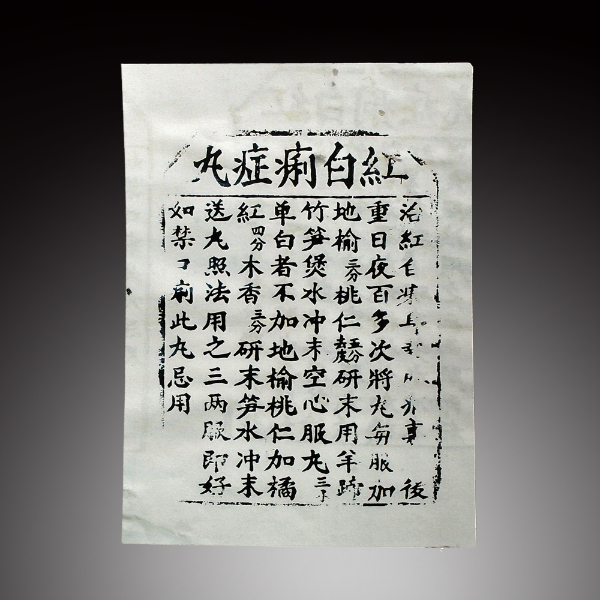 紅白痢症丸
治紅白後
重日夜百多次將丸每服加
地榆三分桃仁五分去皮研末用羊蹄
竹笋煲水冲末空心服丸三十
单白者不加地榆桃仁加橘
紅四分木香三分研末笋水冲末
送丸照法用之三两服即好
如禁口痢此丸忌用